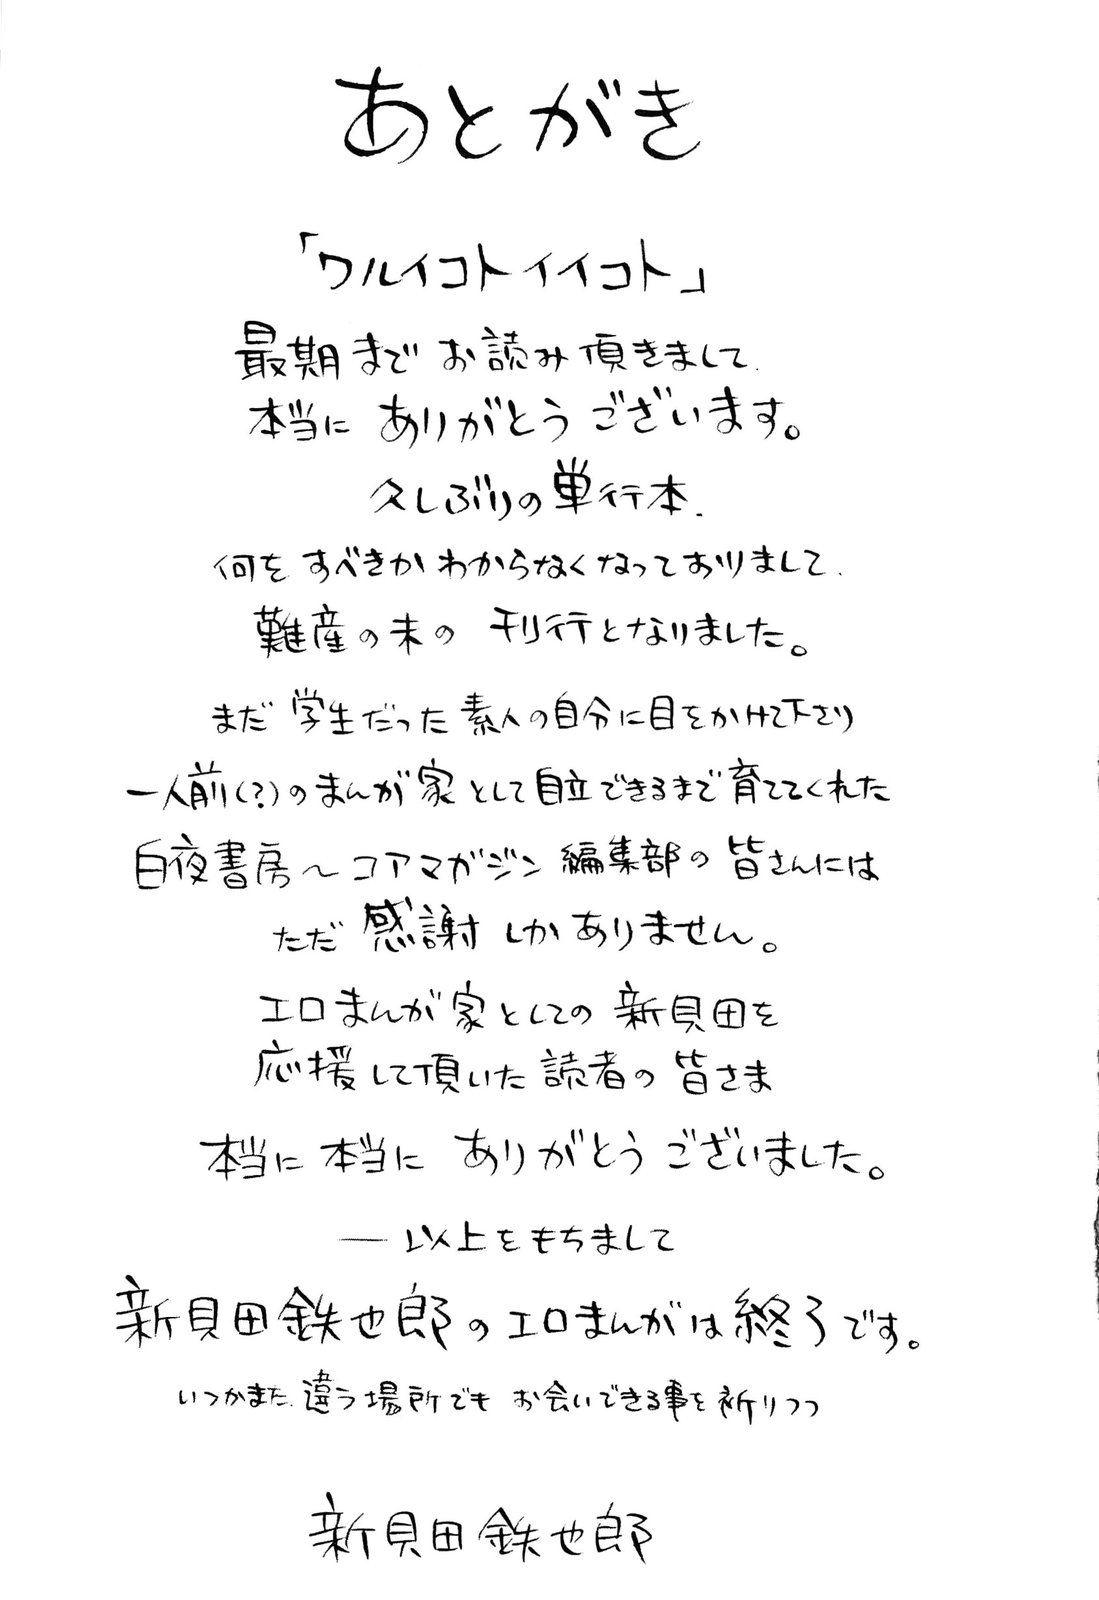 あとがき
「ワルイコトイイコト」
最期までお読み頂きまして、
本当にありがとうございます。
久しぶりの単行本、
何をすべきかわからなくなっておりまして、
難産の末の刊行となりました。
まだ学生だった素人の自分に目をかけて下さり
一人前(?)のまんが家として自立できるまで育ててくれた
白夜書房～コアマガジン編集部の皆さんには
ただ感謝しかありません。
エロまんが家としての新貝田を
応援して頂いた読者の皆さま
本当に本当にありがとうございました。
――以上をもちまして
新貝田鉄也郎のエロまんがは終了です。
いつかまた、違う場所でもお会いできる事を祈りつつ
新貝田鉄也郎